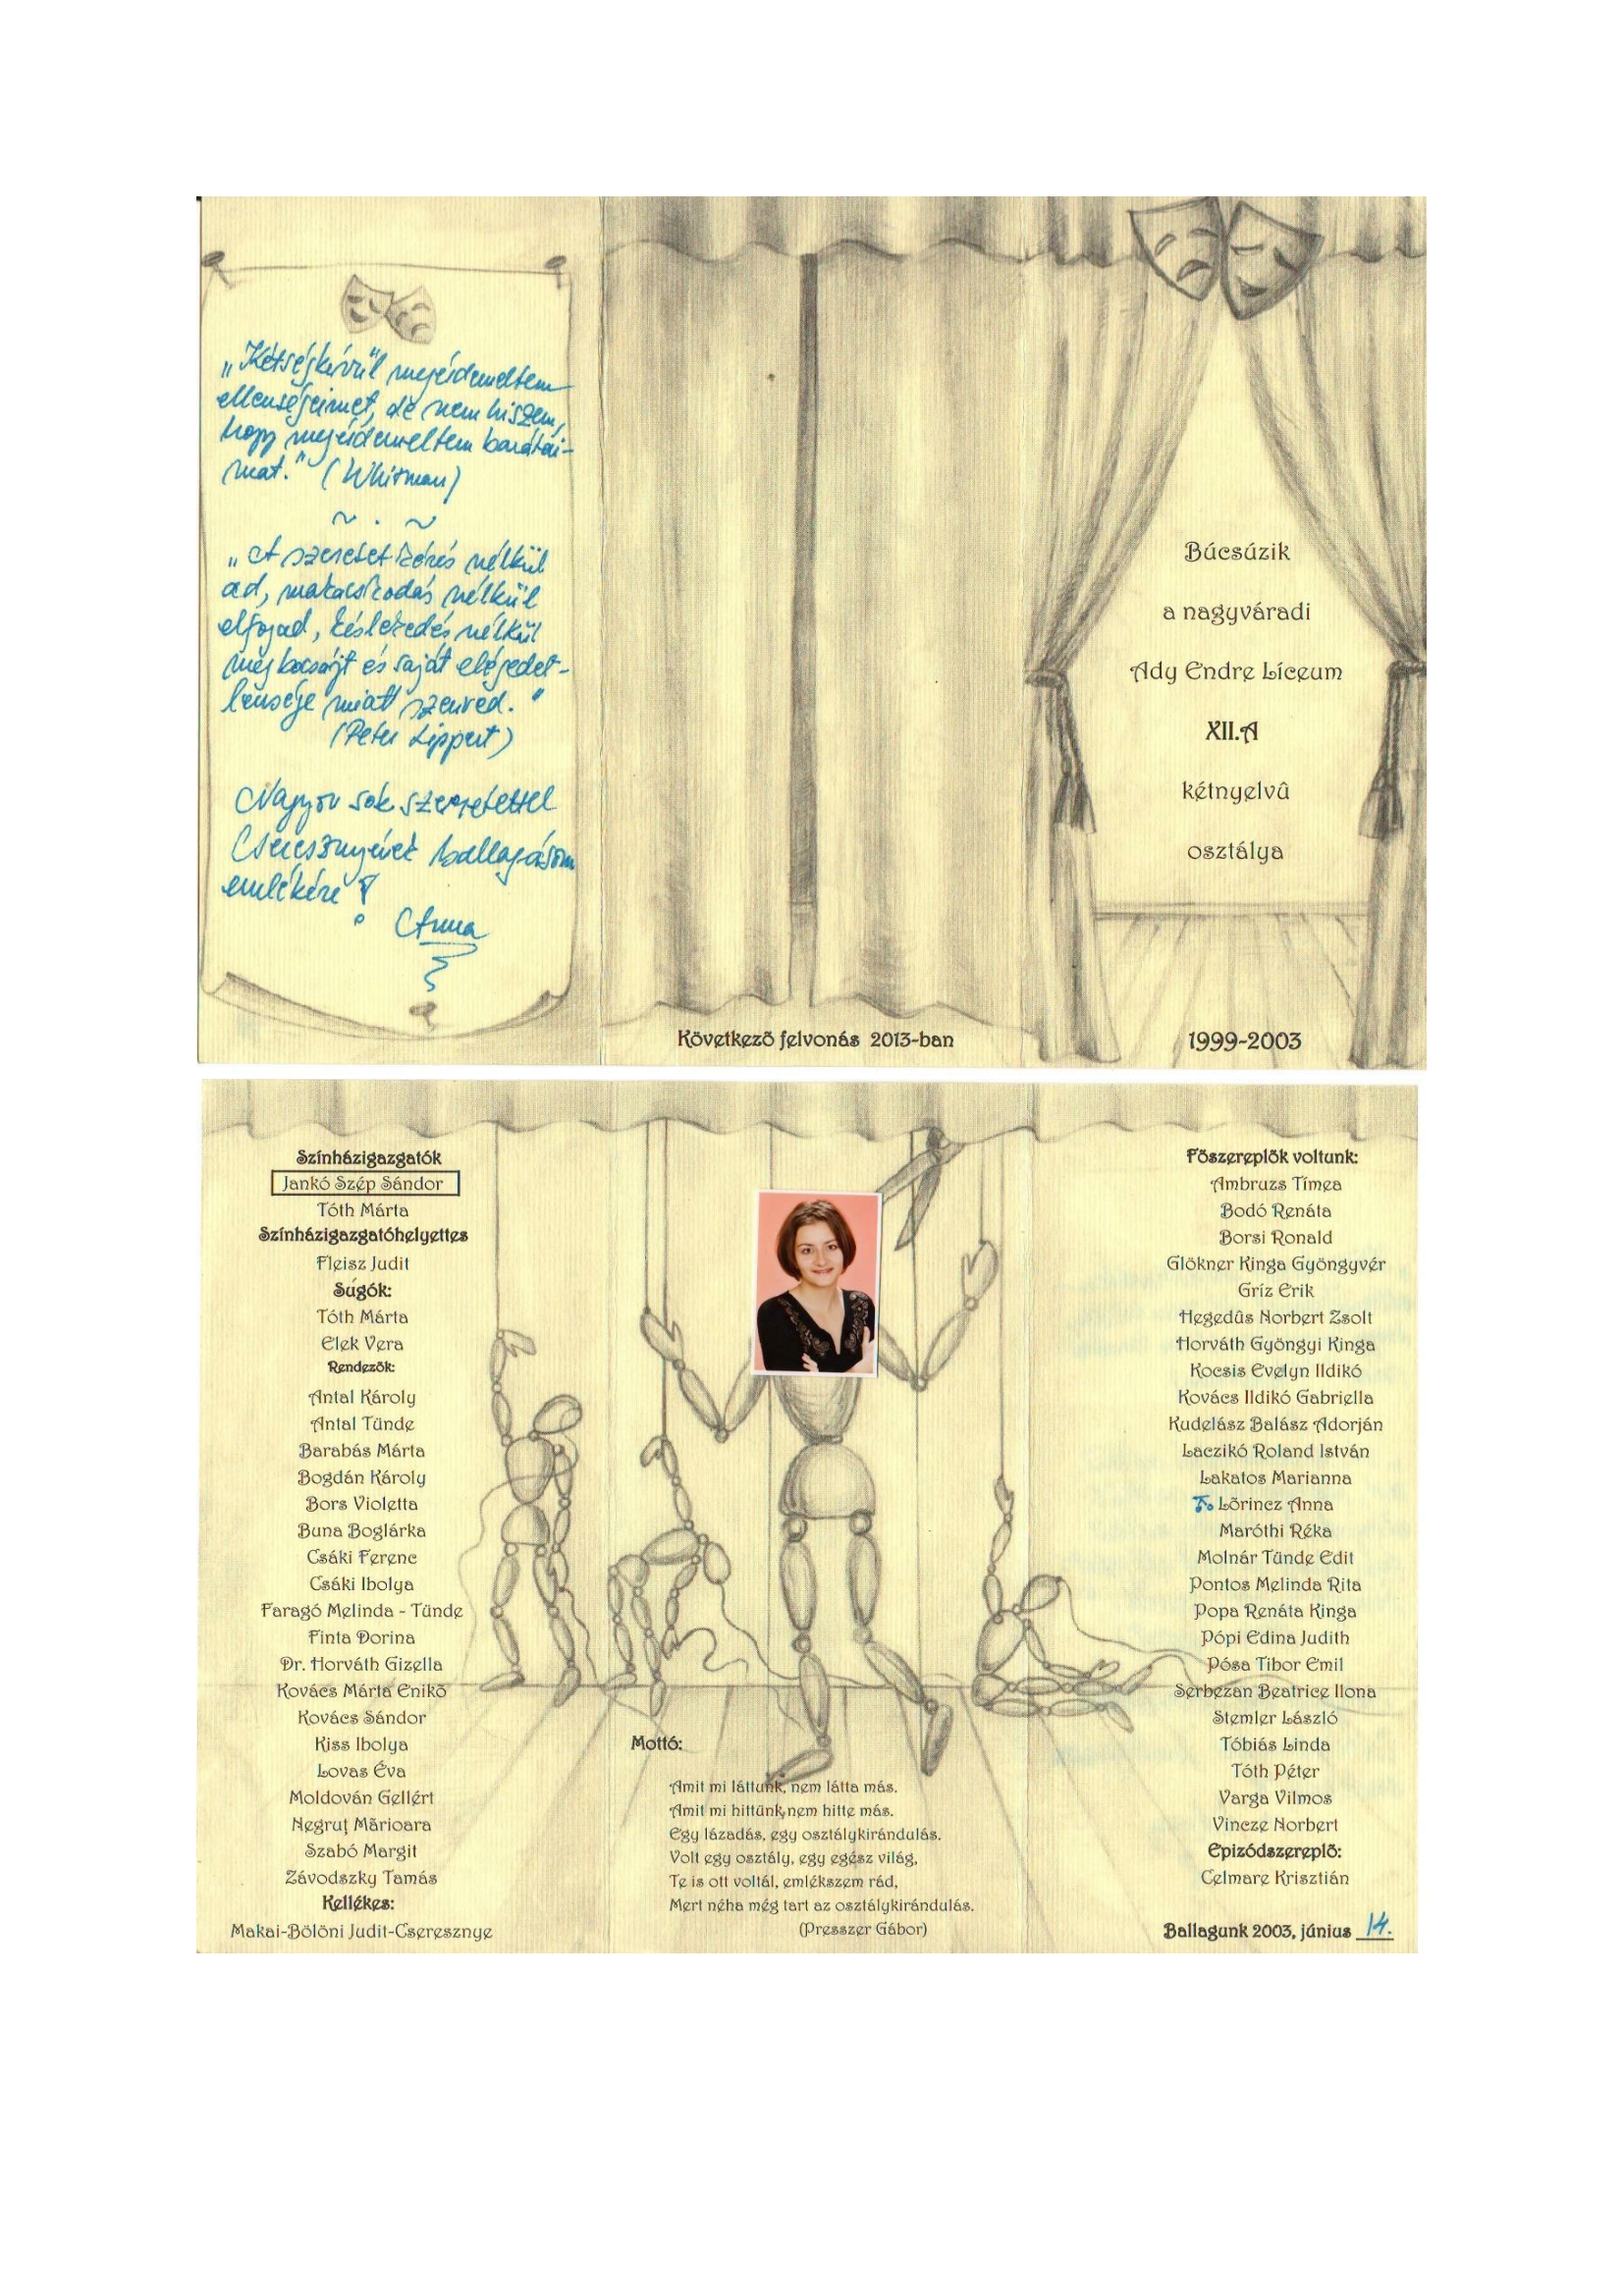 „Kétségkívül megérdemeltem
ellenségeimet, de nem hiszem,
hogy megérdemeltem barátai-
mat." (Whitman)
~ . ~
„A szeretet kérés nélkül
ad, makacskodás nélkül
elfogad, késlekedés nélkül
megbocsájt és saját elégedet-
lensége miatt szenved."
(Peter Lippert)
Nagyon sok szeretettel
Cseresznyének ballagásom
emlékére!
Anna
Következõ felvonás 2013-ban
Búcsúzik
a nagyváradi
Ady Endre Líceum
XII.A
kétnyelvû
osztálya
1999-2003
Színházigazgatók
Jankó Szép Sándor
Tóth Márta
Színházigazgatóhelyettes
Fleisz Judit
Súgók:
Tóth Márta
Elek Vera
Rendezõk:
Antal Károly
Antal Tünde
Barabás Márta
Bogdán Károly
Bors Violetta
Buna Boglárka
Csáki Ferenc
Csáki Ibolya
Faragó Melinda - Tünde
Finta Dorina
Dr. Horváth Gizella
Kovács Márta Enikõ
Kovács Sándor
Kiss Ibolya
Lovas Éva
Moldován Gellért
Negruţ Mãrioara
Szabó Margit
Závodszky Tamás
Kellékes:
Makai-Bölöni Judit-Cseresznye
Mottó:
Amit mi láttunk, nem látta más.
Amit mi hittünk,nem hitte más.
Egy lázadás, egy osztálykirándulás.
Volt egy osztály, egy egész világ,
Te is ott voltál, emlékszem rád,
Mert néha még tart az osztálykirándulás.
(Presszer Gábor)
Fõszereplõk voltunk:
Ambruzs Tímea
Bodó Renáta
Borsi Ronald
Glökner Kinga Gyöngyvér
Gríz Erik
Hegedûs Norbert Zsolt
Horváth Gyöngyi Kinga
Kocsis Evelyn Ildikó
Kovács Ildikó Gabriella
Kudelász Balász Adorján
Laczikó Roland István
Lakatos Marianna
Lõrincz Anna
Maróthi Réka
Molnár Tünde Edit
Pontos Melinda Rita
Popa Renáta Kinga
Pópi Edina Judith
Pósa Tibor Emil
Serbezan Beatrice Ilona
Stemler László
Tóbiás Linda
Tóth Péter
Varga Vilmos
Vincze Norbert
Epizódszereplõ:
Celmare Krisztián
Ballagunk 2003, június 14.